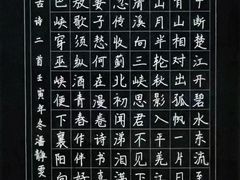 中断楚江开碧水东流至
山相对出孤帆一片日
山月半轮秋影入平羌江
清溪向三峡思君不见
传收蓟北初闻涕泪满
妻子愁何在漫卷诗书
放歌须纵酒青春作伴
巴峡穿巫峡便下襄阳向
古诗二首壬寅年冬潘静雯